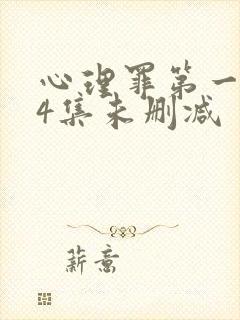 心理罪第一
4集未删减
薪意